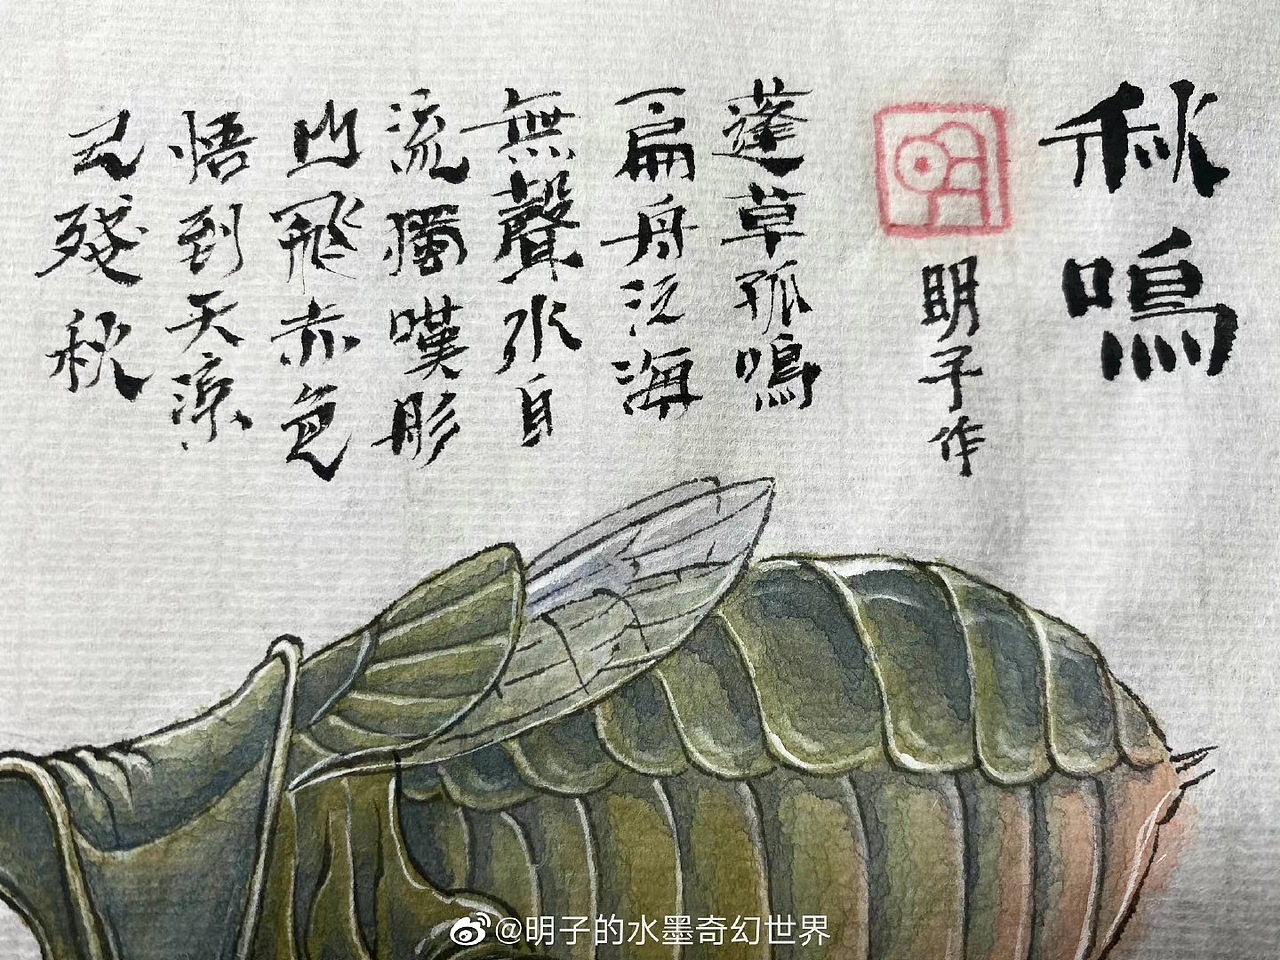 秋鳴
明子作
蓬草孤鳴
一扁舟泛海
無聲水自
流獨嘆彤
山飛赤色
悟到天涼
已殘秋
@明子的水墨奇幻世界